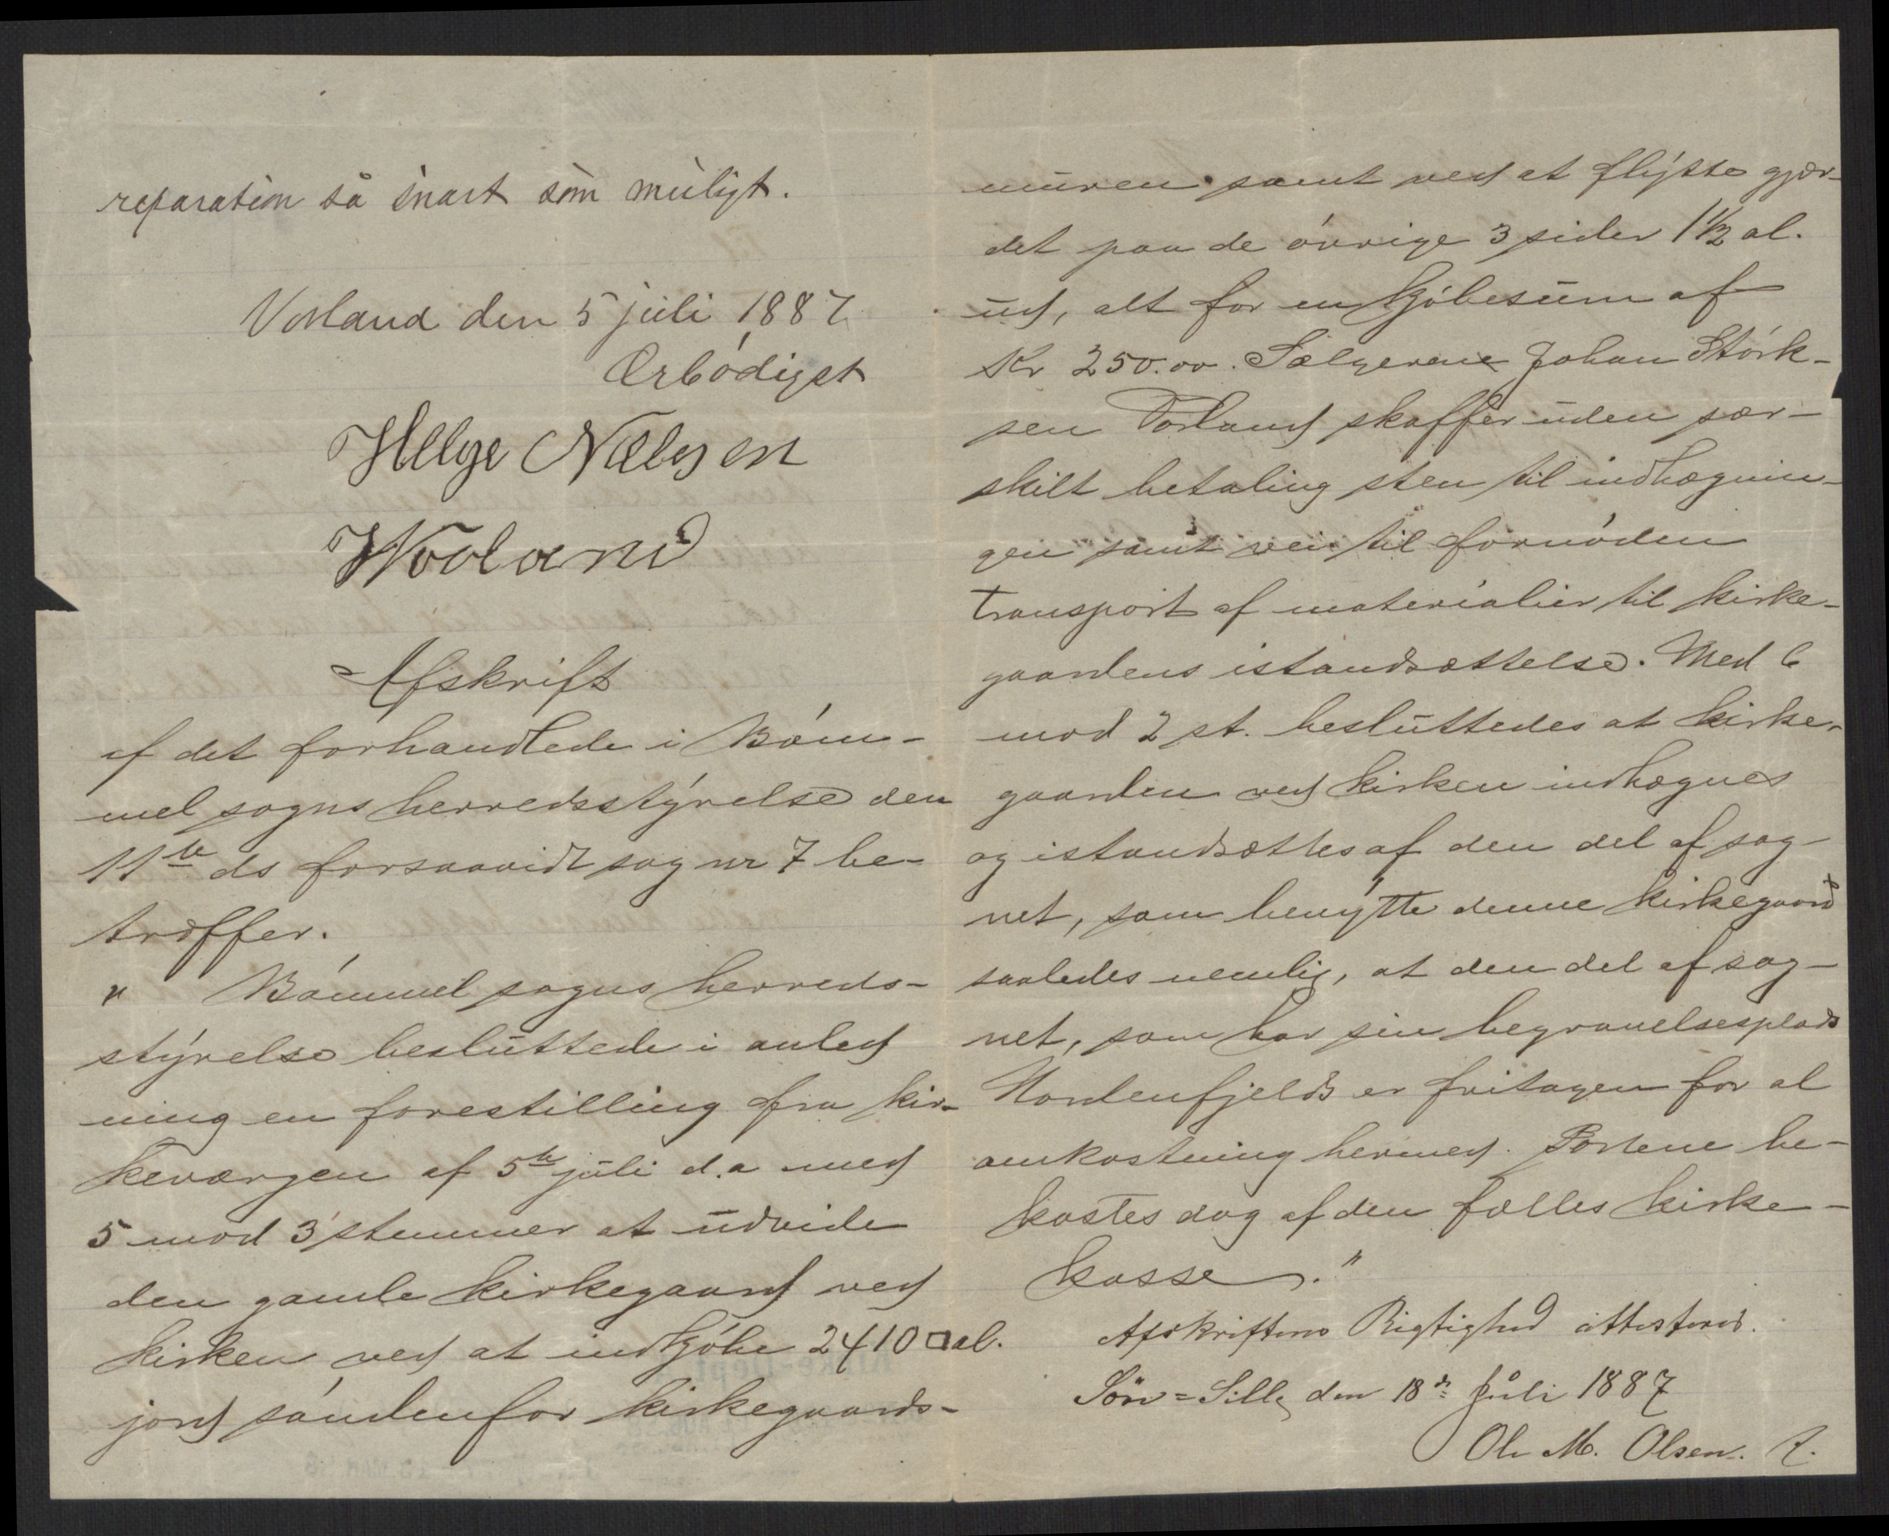 reparation så snart som muligt.
Vorland den 5 juli 1887
Ærbödigst
Helge Nælsen
Wooland
Afskrift
af det forhandlede i Böm-
mel sogns herredsstyrelse den
11te ds forsaavidt sag nr 7 be-
træffer.
" Bömmel sogns herreds-
styrelse besluttede i anled
ning en forestilling fra kir-
keværgen af 5te juli d.a med
5 mod 3 stemmer at udvide
den gamle kirkegaard ved
kirken ved at indkjöbe 2410 □al.
jord söndenfor kirkegaards-
muren samt ved at flytte gjær-
det paa de övrige 3 sider 1½ al.
ud, alt for en kjöbesum af
Kr 250.00. Sælgeren Johan Störk-
sen Vorland skaffer uden sær-
skilt betaling sten til indhægnin-
gen samt vei til fornöden
transport af materialier til kirke-
gaardens istandsættelse. Med 6
mod 2 st. besluttedes at kirke-
gaarden ved kirken indhægnes
og istandsættes af den del af sog-
net, som benytte denne kirkegaard
saaledes nemlig, at den del af sog-
net, som har sin begravelsesplads
Nordenfjelds er fritagen for al
omkostning hermed. Portene be-
kostes dog af den fælles kirke-
kasse."
Afskriftens Rigtighed attesteres.
den 18de Juli 1887
Ole M. Olsen.